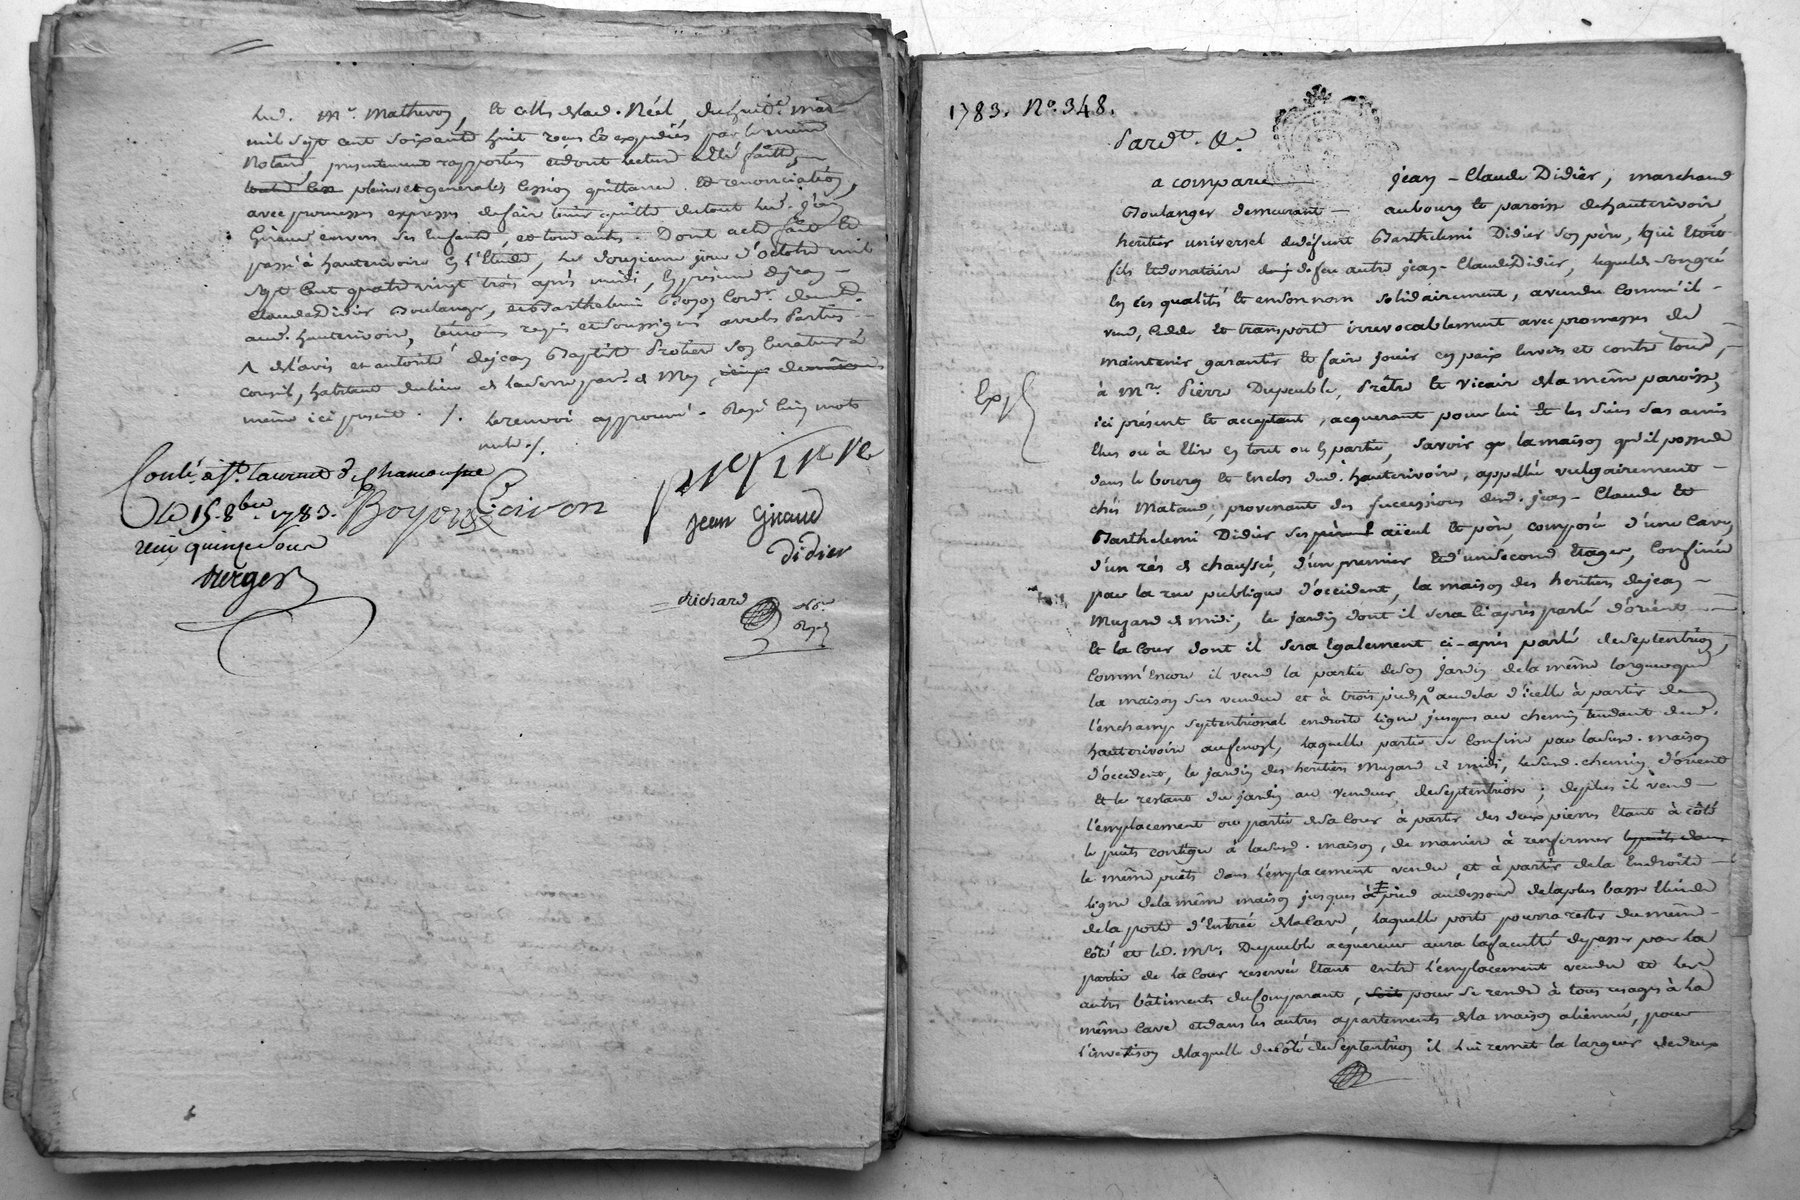 lud. Mr. Mathevon, et celle de lad. Réal, du huit de. mai
mil sept cent soixante huit recus et expédiés par le même
Notaire, présentement rapportés et dont lecture a été faitte,
pleine et generales cession quittance et renonciation,
avec promesses expresses de faire tenir quitte du tout led. Jean
Giraud envers ses Enfants, et tous autres. Dont acte fait et
passé à hauterivoire en l'Etude, le douzieme jour d'octobre mil
sept cent quatre vingt trois après midi, En présence de jean-
claude Didier Boulanger, et Barthelemi Boyon Cord.r demt.
aud. hauterivoire, témoins requis et soussignés avec les Parties.-
de l'avis et autorité de jean Baptiste Protier son Curateur à
conseil, habitant du lieu de la serre par. de Mey,
même ici present. /. le renvoi approuvé. Rayé Cinq mots
nuls./.
Conlé à St. laurent d. Chamousset
Le 15. 8bre. 1783.
reçu quinze sous
Verger
Boyon
Coivon
jean Giraud
didier
Richard
No.re
Royal
1783. No. 348.
Pardt. &a.
a comparu jean-Claude Didier, marchand
Boulanger demeurant au bourg et paroisse de hauterivoire,
heritier universel de défunt Barthelemi Didier son père, qui Etoit
fils et donataire de feu autre jean-Claude Didier, lequel de son gré
En ces qualités et en son nom solidairement, a vendu comm'il-
vend, cedde et transporte irrevocablement avec promesses de
maintenir garantir et faire jouir en paix Envers et contre tous,
à Mr. Pierre Dupeuble, Prêtre et vicaire de la même paroisse,
ici présent et acceptant, acquerant pour lui et les siens ses amis
Elus ou à Elire en tout ou En partie, savoir la maison qu'il possede
dans le bourg et Enclos dud. hauterivoire, appellée vulgairement-
chés Mataud, provenant des successions desd. jean-Claude et
Barthelemi Didier ses aïeul et père, composée d'une Cave,
d'un rés de chaussée, d'un premier et d'un second Etages, Confinée
par la rue publique d'occident, la maison des heritiers de jean-
Muzard de midi, le jardin dont il sera ci après parlé d'orient
et la Cour dont il sera Egalement ci-après parlé de septentrion,
Comm'Encore il vend la partie de son jardin de la même largeur que
la maison sus vendue et à trois pieds au dela d'icelle à partir de
l'enchamp septentrional en droite ligne jusques au chemin tendant dud.
hauterivoire au fenoyl, laquelle partie se Confine par lasusd. maison
d'occident, le jardin des heritiers Muzard de midi, le susd. chemin d'orient
et le restant du jardin au vendeur de septentrion; de plus il vend-
l'emplacement ou partie de la Cour à partir des deux pierres Etant à côté
le puits contigu à lasusd. maison, de maniere à renfermer
le même puits dans l'emplacement vendu, et à partir de la En droite
ligne de la même maison jusques à pied audessous de la plus basse
de la porte d'Entrée de la Cave, laquelle porte pourra rester du même-
côté et led. Mr. Dupeuble acquereur aura la faculté de passer par la
partie de la Cour reservée Etant entre l'emplacement vendu et les
autres bâtiments du Comparant, pour se rendre à tous usages à la
même Cave et dans les autres apartements de la maison aliennée, pour
de laquelle du Côté du septentrion il lui remet la largeur de deux